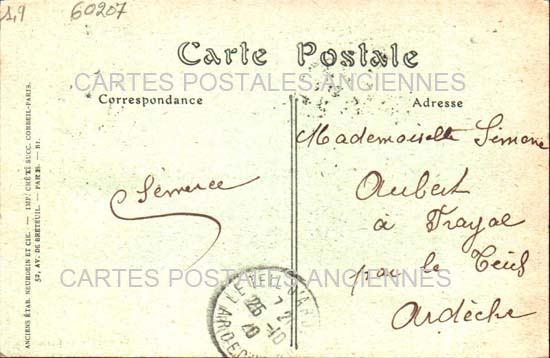 1,9
60207
Carte Postale
CARTES POSTALES ANCIENNES
Correspondance
Adresse
Mademoiselle Simone
Aubert
à Frayol
par le Teil
Ardèche
CARTES POSTALES ANCIENNES
LE TEIL D'ARD
25
10
ANCIENS ÉTAB. NEURDEIN ET CIE. — IMP. CRÉTÉ SUCC. CORBEIL-PARIS.
52, AV. DE BRETEUIL. — PARIS. — B1.